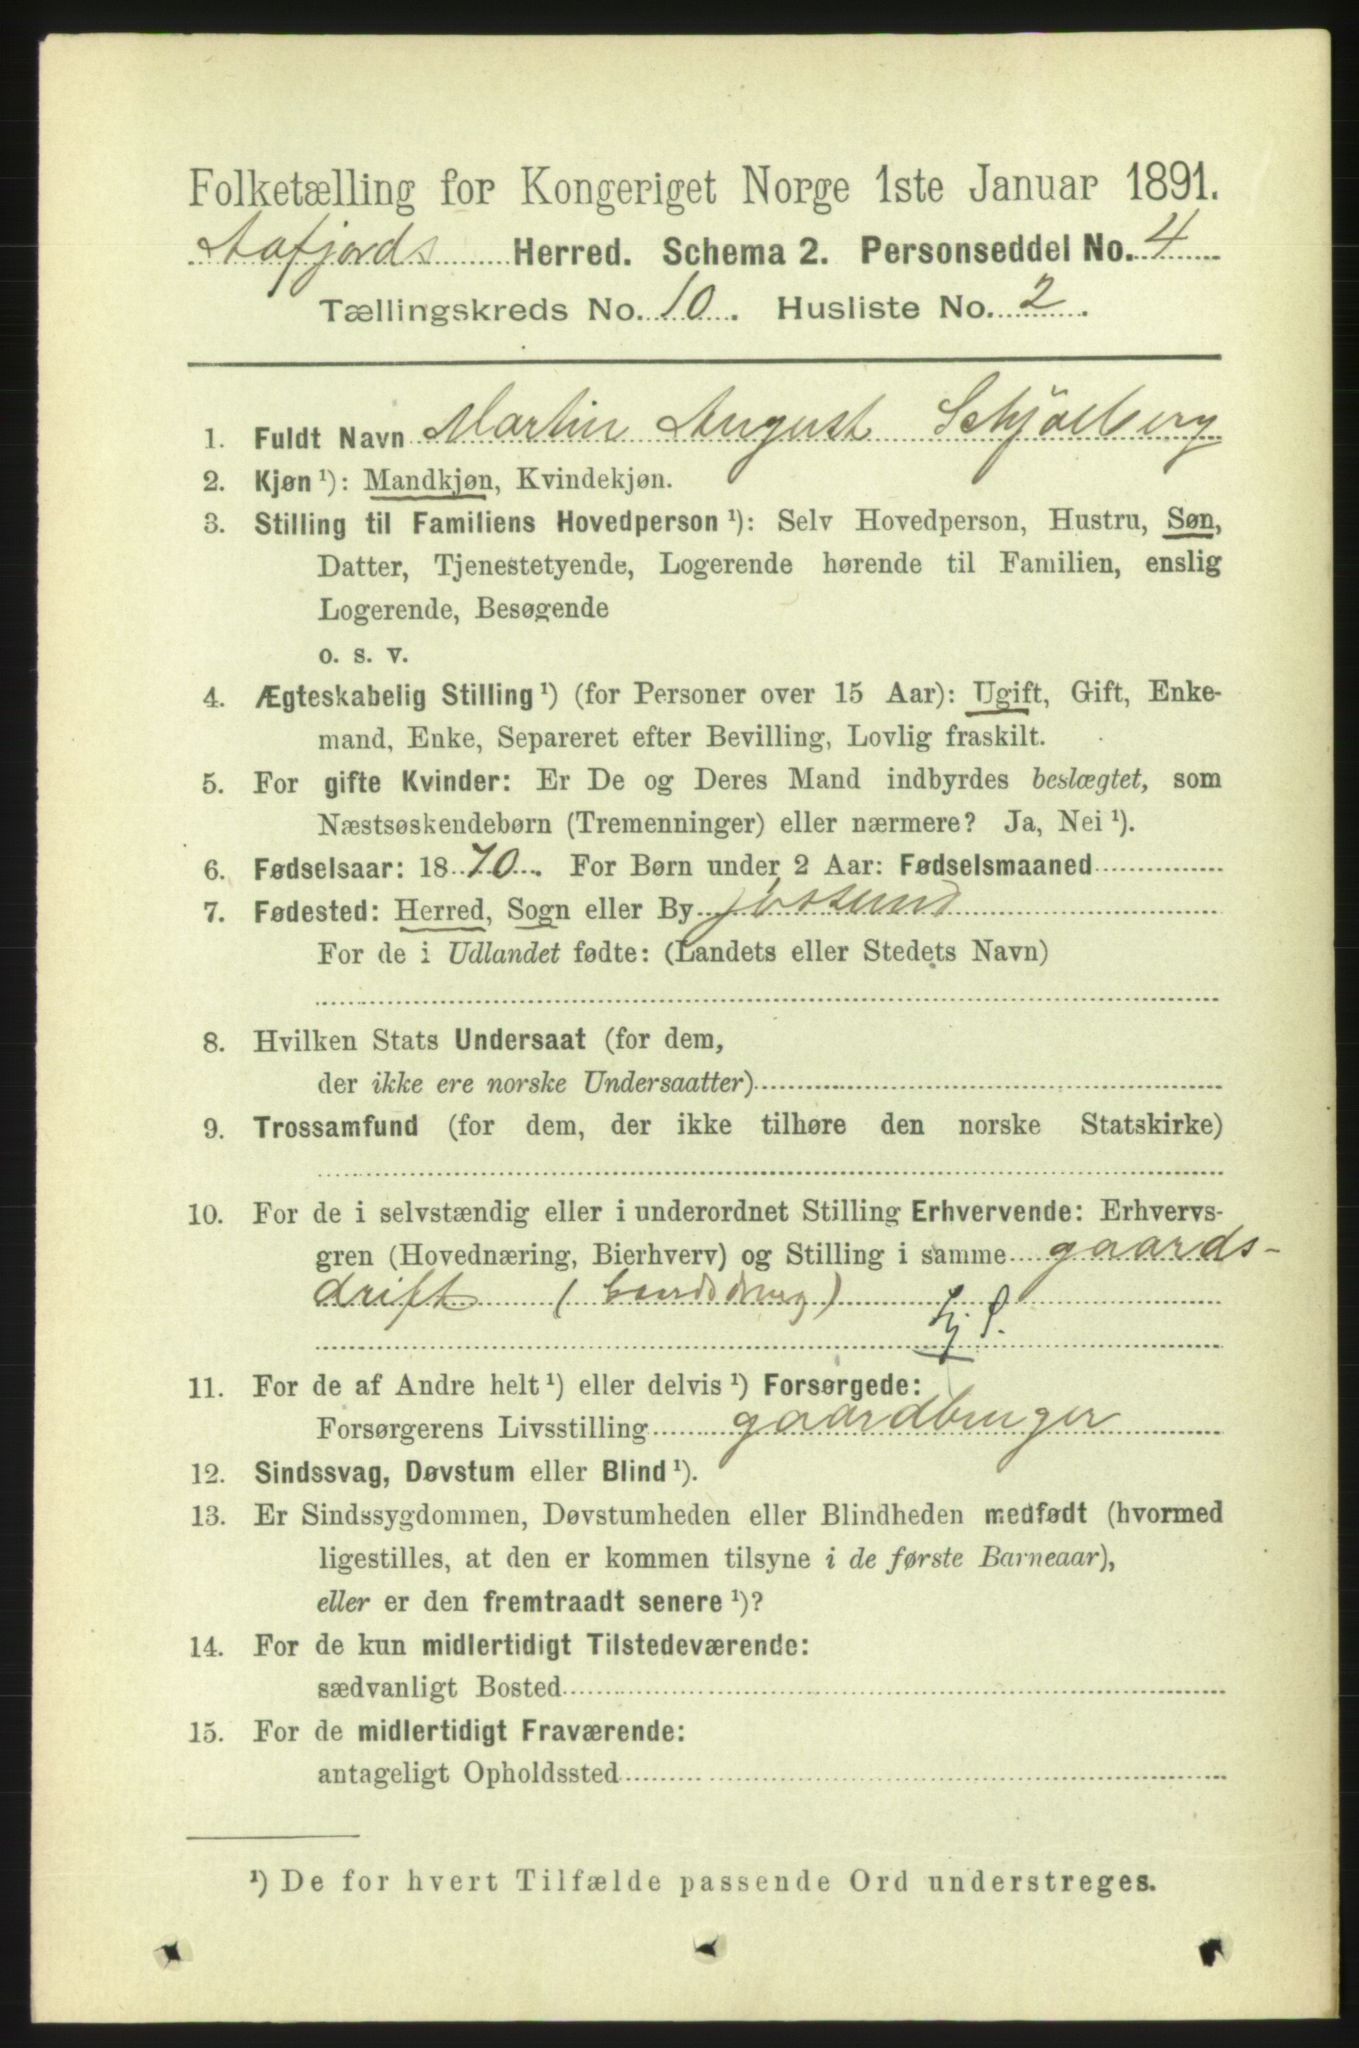 Folketælling for Kongeriget Norge 1ste Januar 1891.
Aafjords Herred. Schema 2. Personseddel No. 4
Tællingskreds No. 10. Husliste No. 2.
1. Fuldt Navn Martin August Schjølberg
2. Kjøn ¹): Mandkjøn, Kvindekjøn.
3. Stilling til Familiens Hovedperson ¹): Selv Hovedperson, Hustru, Søn,
Datter, Tjenestetyende, Logerende hørende til Familien, enslig
Logerende, Besøgende
o. s. v.
4. Ægteskabelig Stilling ¹) (for Personer over 15 Aar): Ugift, Gift, Enke-
mand, Enke, Separeret efter Bevilling, Lovlig fraskilt.
5. For gifte Kvinder: Er De og Deres Mand indbyrdes beslægtet, som
Næstsøskendebørn (Tremenninger) eller nærmere? Ja, Nei ¹).
6. Fødselsaar: 1870. For Børn under 2 Aar: Fødselsmaaned
7. Fødested: Herred, Sogn eller By Jøssund
For de i Udlandet fødte: (Landets eller Stedets Navn)
8. Hvilken Stats Undersaat (for dem,
der ikke ere norske Undersaatter)
9. Trossamfund (for dem, der ikke tilhøre den norske Statskirke)
10. For de i selvstændig eller i underordnet Stilling Erhvervende: Erhvervs-
gren (Hovednæring, Bierhverv) og Stilling i samme gaards-
drift
11. For de af Andre helt ¹) eller delvis ¹) Forsørgede:
Forsørgerens Livsstilling gaardbruger
12. Sindssvag, Døvstum eller Blind ¹).
13. Er Sindssygdommen, Døvstumheden eller Blindheden medfødt (hvormed
ligestilles, at den er kommen tilsyne i de første Barneaar),
eller er den fremtraadt senere ¹)?
14. For de kun midlertidigt Tilstedeværende:
sædvanligt Bosted
15. For de midlertidigt Fraværende:
antageligt Opholdssted
¹) De for hvert Tilfælde passende Ord understreges.